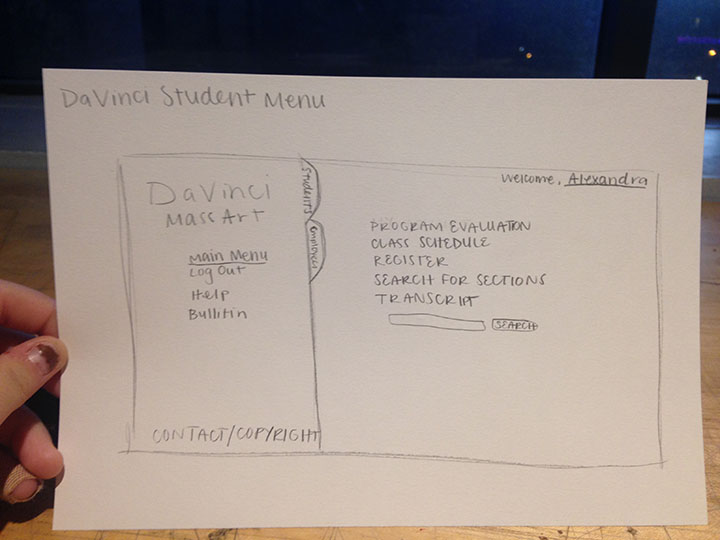 DaVinci Student Menu
Welcome, Alexandra
DaVinci
MassArt
Main Menu
Log Out
Help
Bullitin
CONTACT/COPYRIGHT
Students
Employees
PROGRAM EVALUATION
CLASS SCHEDULE
REGISTER
SEARCH FOR SECTIONS
TRANSCRIPT
SEARCH